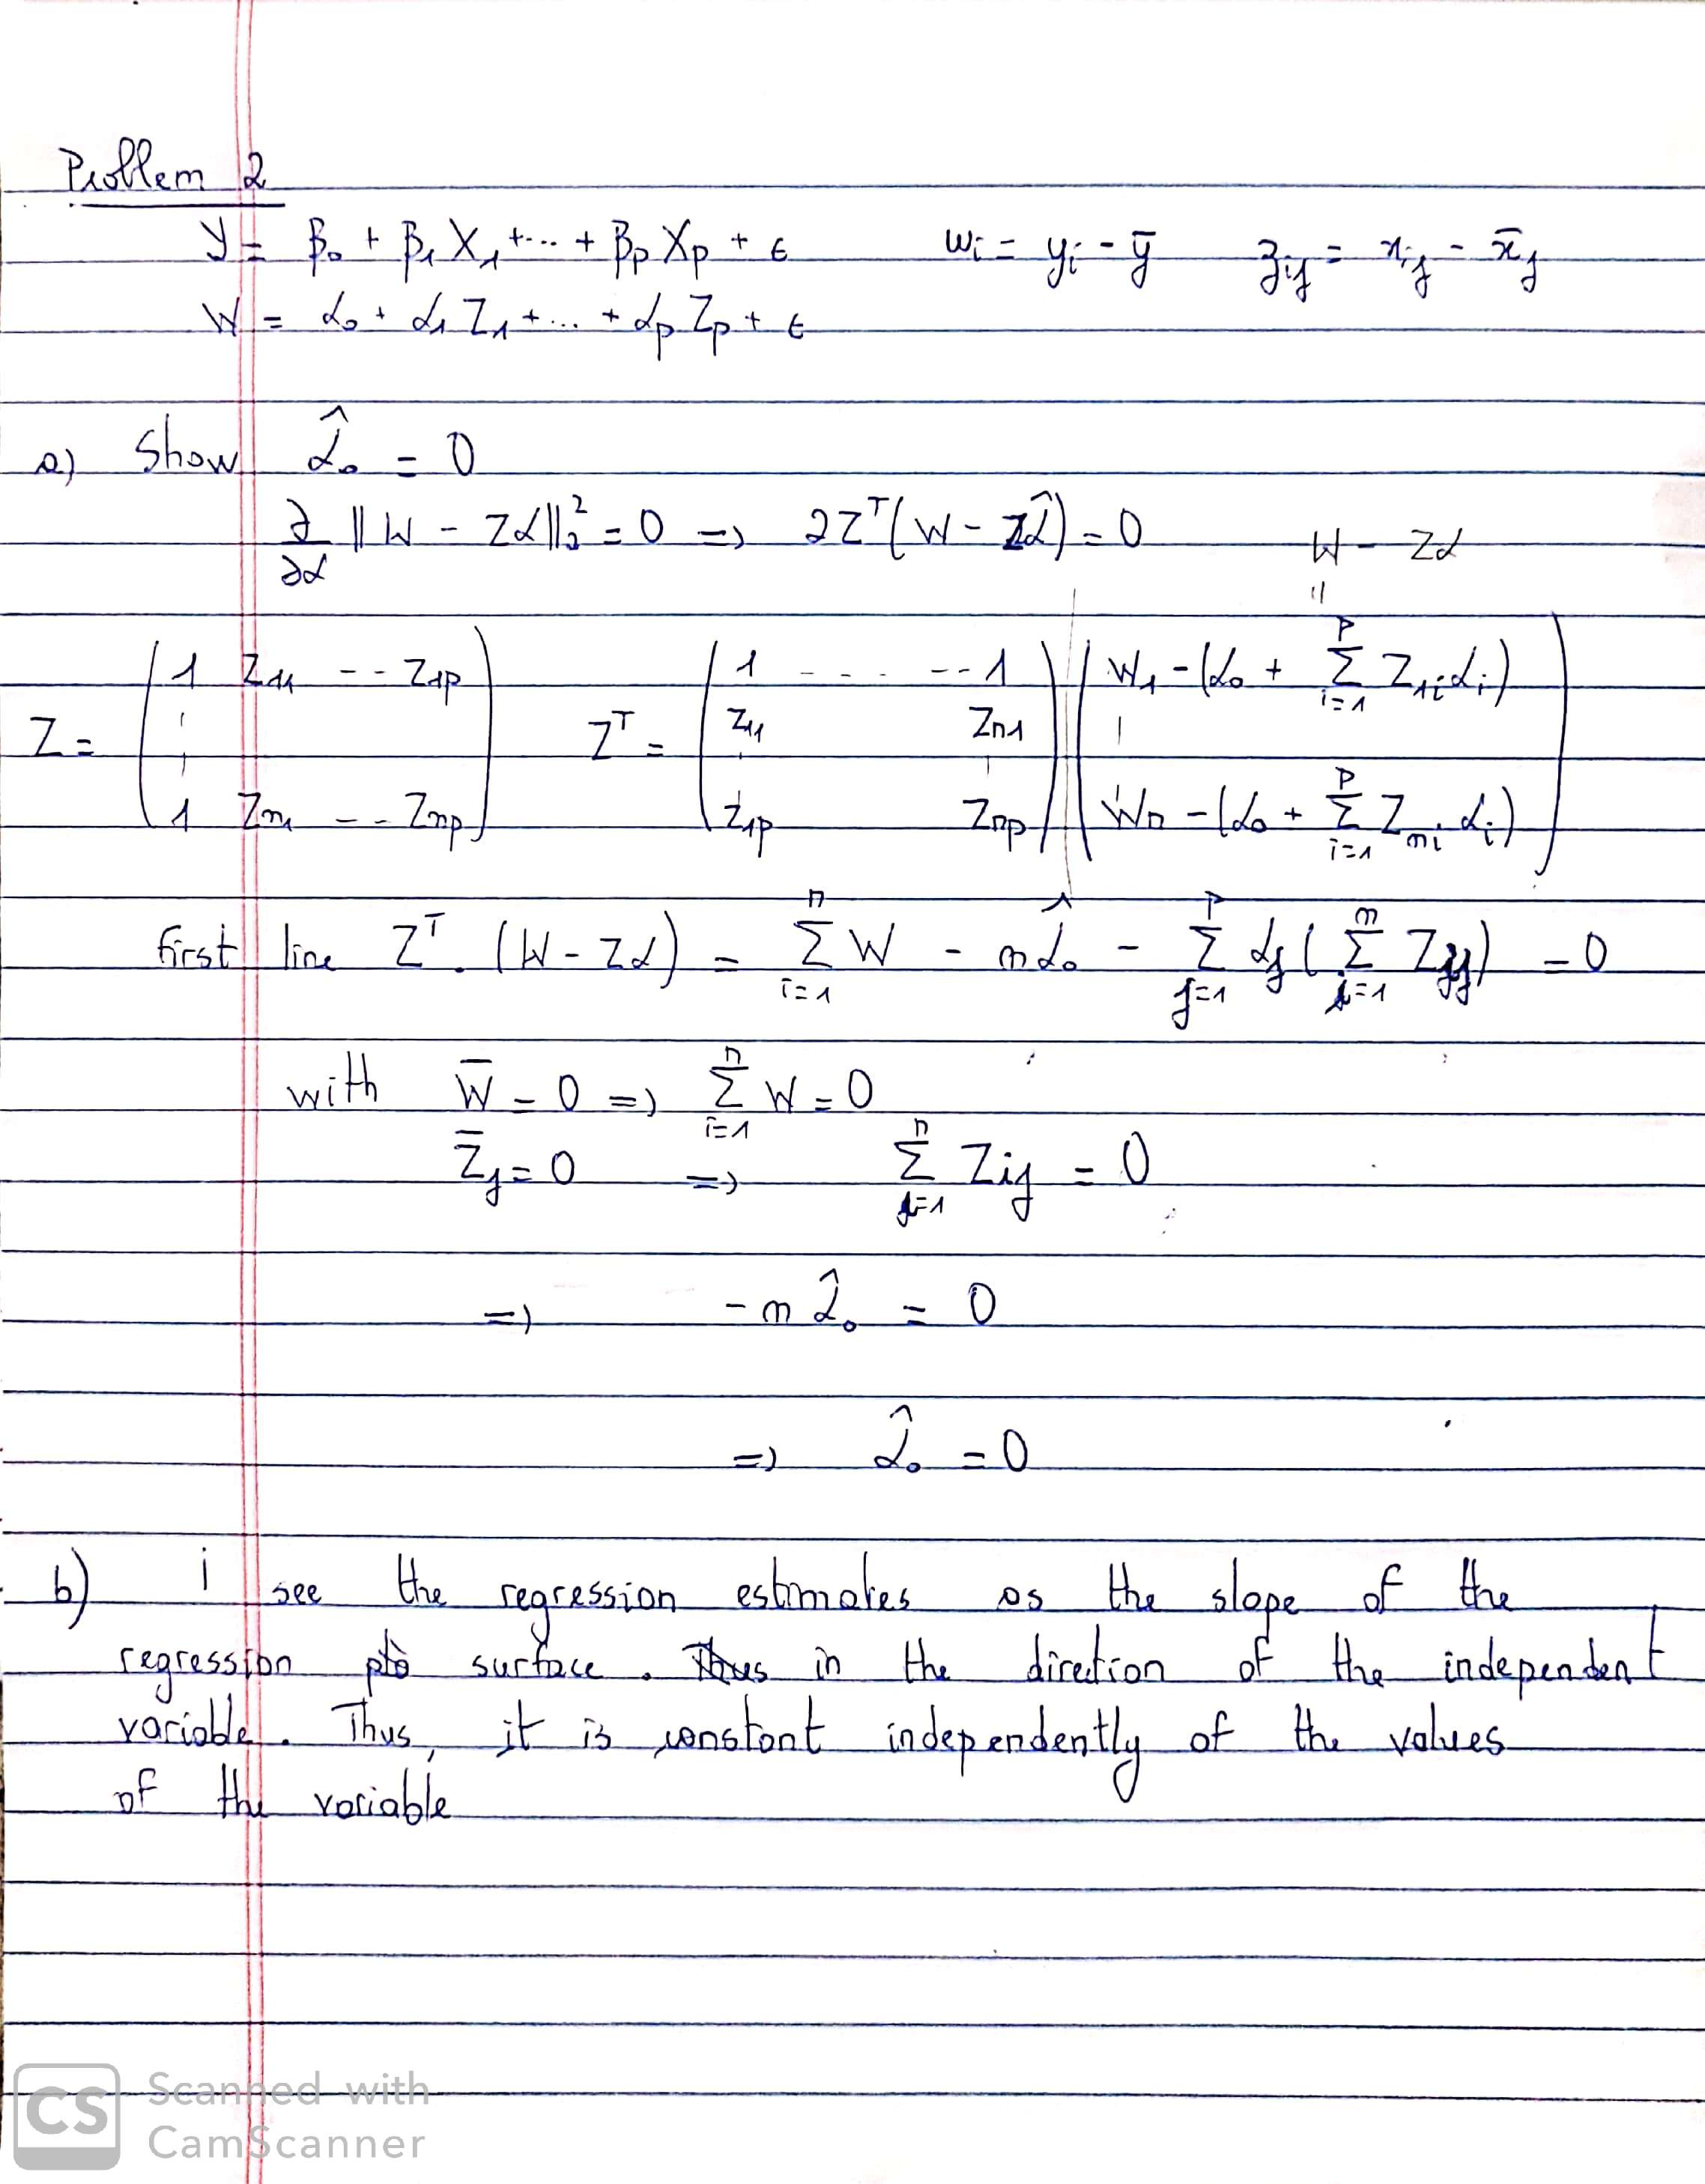 Problem 2
y = β₀ + β₁ X₁ + ... + βp Xp + ε    wi = yi - ȳ    zij = xij - x̄j
W = α₀ + α₁ Z₁ + ... + αp Zp + ε
a) Show α̂₀ = 0
∂/∂α ‖W - Zα‖₂² = 0 => 2Zᵀ(W - Zα̂) = 0    W - Zα
"
Z = ( 1 Z11 -- Z1p ; 1 Zn1 -- Znp )    Zᵀ = ( 1 - - - -- 1 ; Z11 Zn1 ; Z1p Znp ) ( W1 - (α₀ + Σ_{i=1}^{p} Z1i αi) ; Wn - (α₀ + Σ_{i=1}^{p} Zni αi) )
first line Zᵀ. (W - Zα) = Σ_{i=1}^{n} W - n α̂₀ - Σ_{j=1}^{p} αj ( Σ_{i=1}^{n} Zij ) = 0
with W̄ = 0 => Σ_{i=1}^{n} W = 0
Z̄j = 0 => Σ_{i=1}^{n} Zij = 0
=> - n α̂₀ = 0
=> α̂₀ = 0
b) i see the regression estimates as the slope of the
regression surface. in the direction of the independent
variable. Thus, it is constant independently of the values
of the variable
CS Scanned with
CamScanner